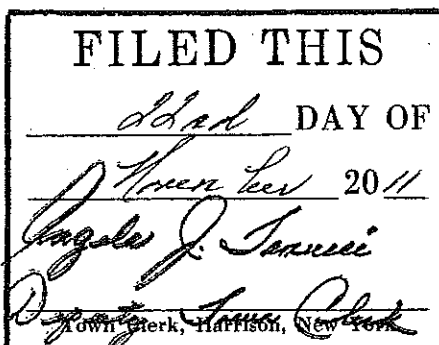 FILED THIS
22nd DAY OF
November 2011
Angela J.
Deputy Town Clerk
Town Clerk, Harrison, New York